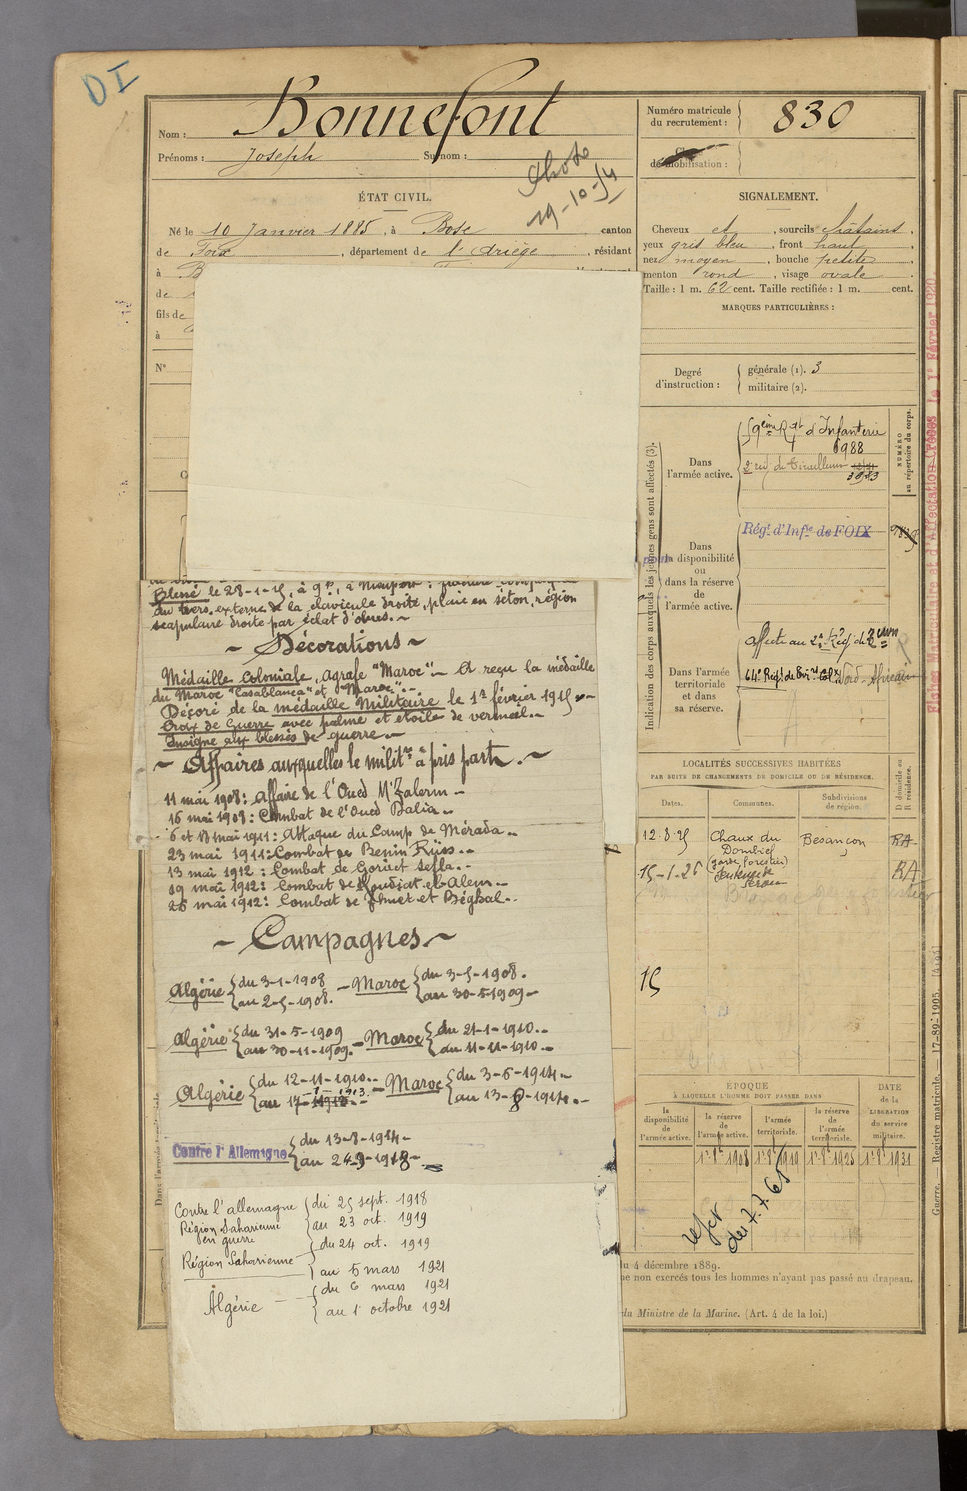 DI
Nom : Bonnefont
Prénoms : Joseph Surnom :
Photo
19-10-54
ÉTAT CIVIL.
Né le 10 Janvier 1885, à Bosc canton
de Foix, département de l'Ariège, résidant
à B
de
fils de
à
N°
Numéro matricule
du recrutement : 830
de mobilisation :
SIGNALEMENT.
Cheveux et , sourcils châtains,
yeux gris bleu, front haut,
nez moyen, bouche petite,
menton rond, visage ovale.
Taille : 1 m. 62 cent. Taille rectifiée : 1 m. cent.
MARQUES PARTICULIÈRES :
Degré
d'instruction :
générale (1). 3
militaire (2).
Indication des corps auxquels les jeunes gens sont affectés (3).
NUMÉRO
au répertoire du corps.
Dans
l'armée active.
59ème Rgt d'Infanterie
6988
2e rég. de Tirailleurs
Dans
la disponibilité
ou
dans la réserve
de
l'armée active.
Régt d'Infie de FOIX
Dans l'armée
territoriale
et dans
sa réserve.
Affecté au
64e Régt de
Nord-Africain
Blessé le 28-1-15, à 9h, à Nieuport : fracture
du tiers externe de la clavicule droite, plaie en séton, région
scapulaire droite par éclat d'obus.~
~ Décorations ~
Médaille Coloniale, agrafe "Maroc" - A reçu la médaille
du Maroc "Casablanca" et "Maroc".-
Décoré de la médaille Militaire le 1er février 1915 -
Croix de Guerre avec palme et étoile de vermeil.-
Insigne aux blessés de guerre.-
~ Affaires auxquelles le militre a pris part. ~
11 mai 1908 : Affaire de l'Oued M'Zalerm -
16 mai 1908 : Combat de l'Oued Dalia -
6 et 8 mai 1911 : Attaque du Camp de Mérada -
23 mai 1911 : Combat de Benin
13 mai 1912 : Combat de
19 mai 1912 : Combat de
26 mai 1912 : Combat de
~ Campagnes ~
Algérie { du 3-1-1908
au 2-5-1908. - Maroc { du 3-5-1908.
au 30-5-1909 -
Algérie { du 31-5-1909
au 30-11-1909. - Maroc { du 21-1-1910.-
au 11-11-1910.-
Algérie { du 12-11-1910.-
au 17- 1913. - Maroc { du 3-6-1914 -
au 13-8-1914.-
Contre l'Allemagne { du 13-8-1914 -
au 24-9-1918 -
Contre l'allemagne { du 25 sept. 1918
Région Saharienne
en guerre au 23 oct. 1919
Région Saharienne { du 24 oct. 1919
au 5 mars 1921
Algérie { du 6 mars 1921
au 1 octobre 1921
LOCALITÉS SUCCESSIVES HABITÉES
PAR SUITE DE CHANGEMENTS DE DOMICILE OU DE RÉSIDENCE.
Dates. Communes. Subdivisions
de région.
D domicile ou
R résidence.
12.8.25 Chaux du
Dombief
(garde forestier) Besançon RA
15-1-26 RA
15
ÉPOQUE
À LAQUELLE L'HOMME DOIT PASSER DANS
DATE
de la
LIBÉRATION
du service
militaire.
la
disponibilité
de
l'armée active.
la réserve
de
l'armée active.
l'armée
territoriale.
la réserve
de
l'armée
territoriale.
1er 8bre 1908 1er 8bre 1919 1er 8bre 1925 1er 8bre 1931
du 7.7.61
du 4 décembre 1889.
non exercés tous les hommes n'ayant pas passé au drapeau.
du Ministre de la Marine. (Art. 4 de la loi.)
Fiches Matriculaire et d'Affectation Créées le 1er Février 1920.
Guerre. Registre matricule. — 17-89-1905. [4194]